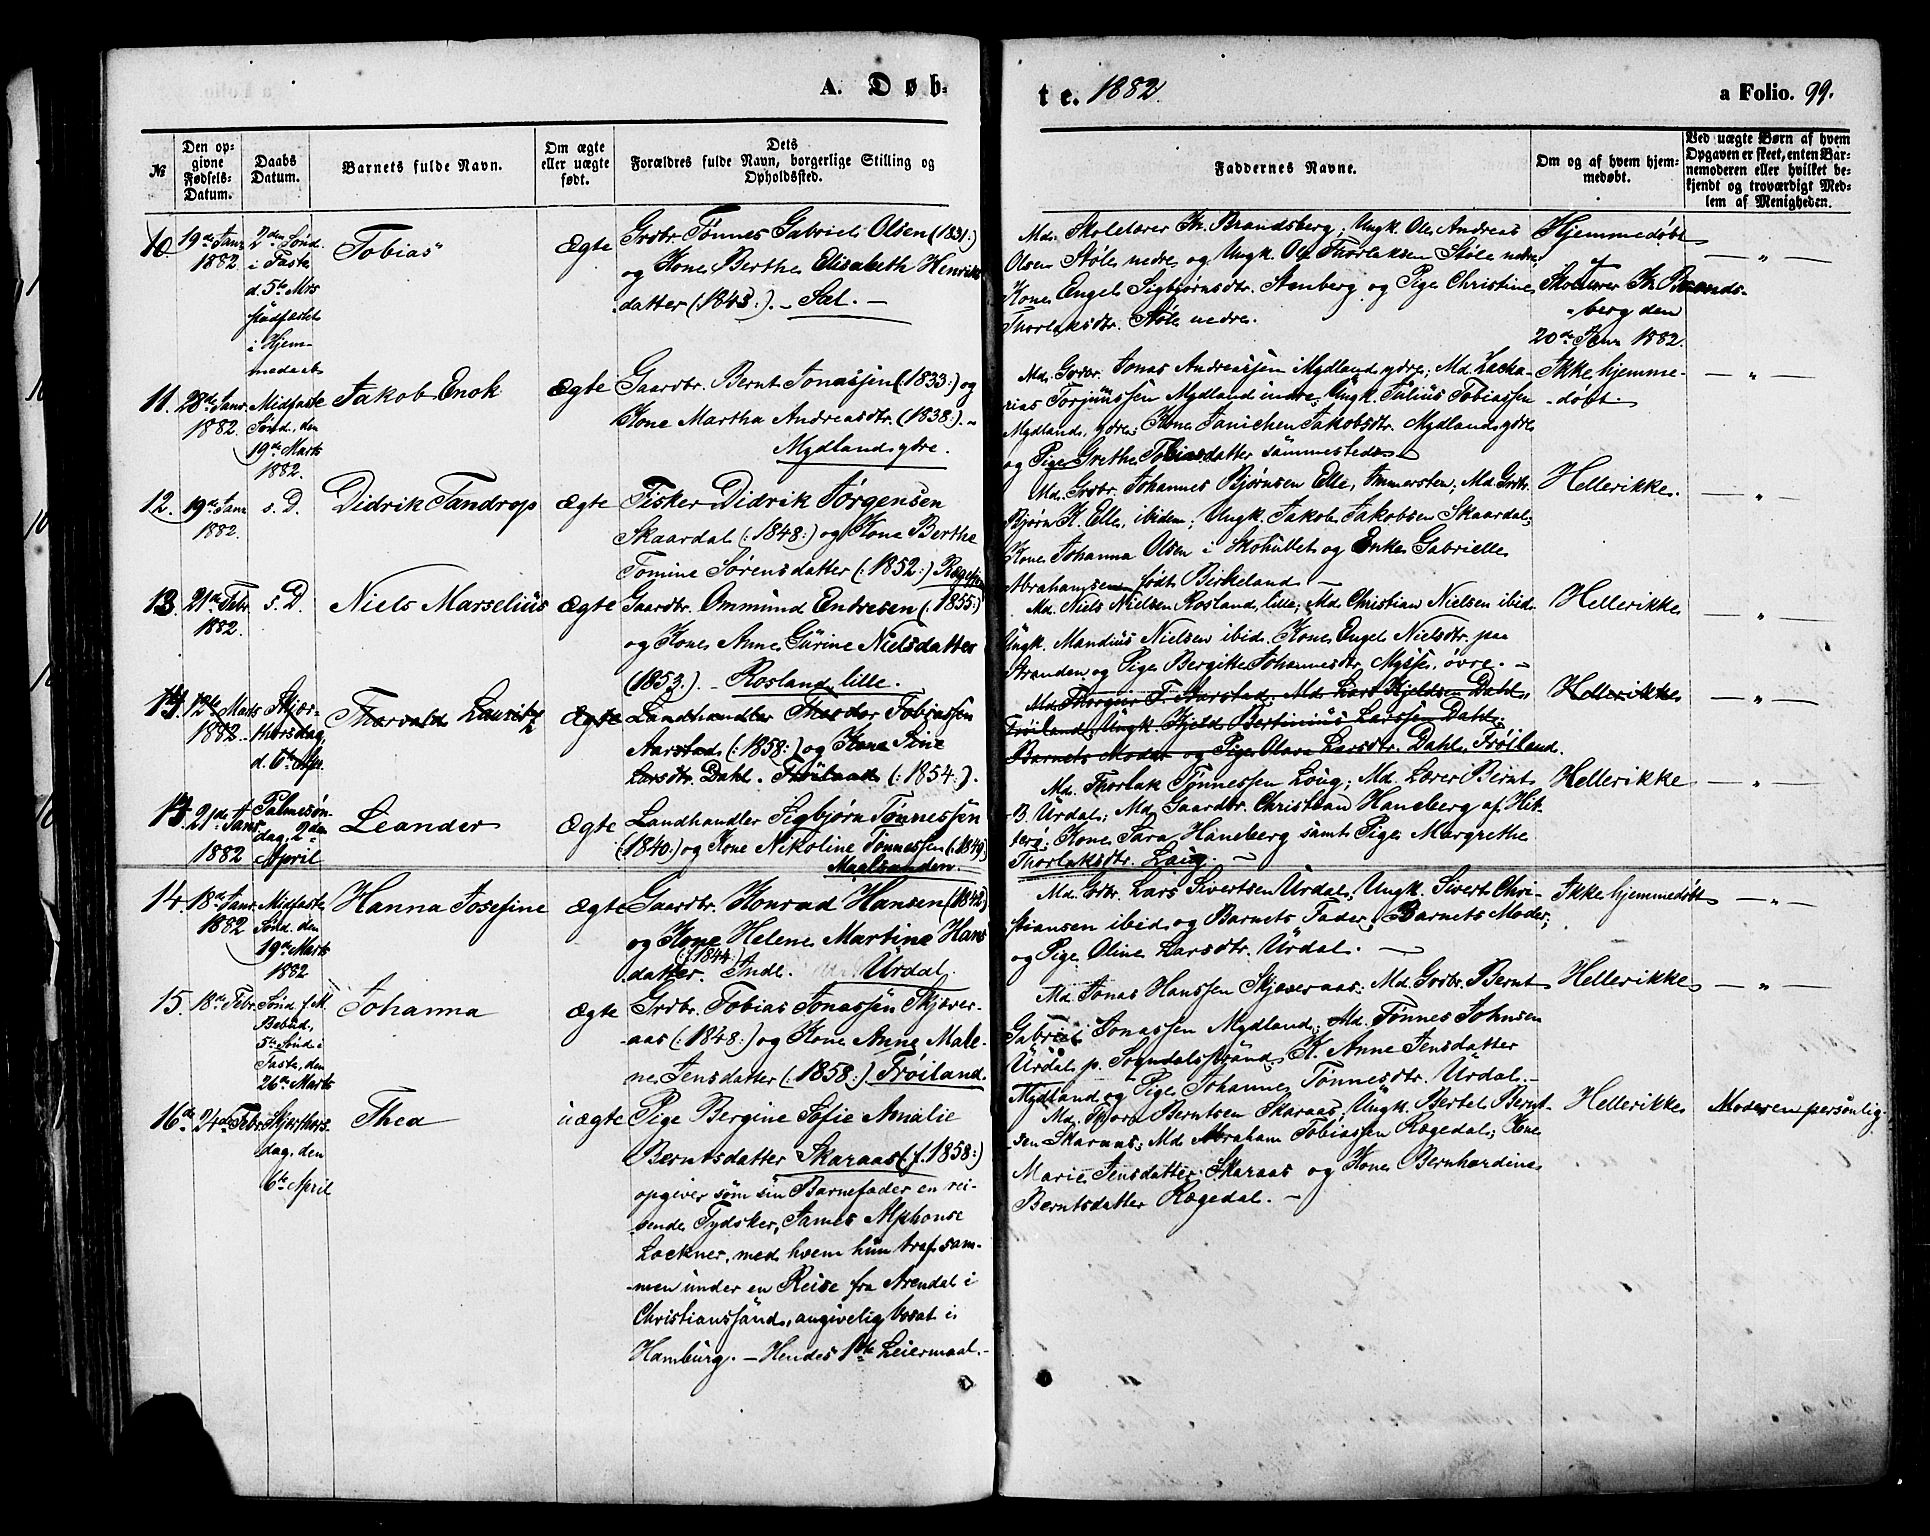 A. Døb-
te. 1882.
a Folio. 99.
№
Den op-
givne
Fødsels-
Datum.
Daabs
Datum.
Barnets fulde Navn.
Om ægte
eller uægte
født.
Dets
Forældres fulde Navn, borgerlige Stilling og
Opholdssted.
Faddernes Navne.
Om og af hvem hjem-
medøbt.
Ved uægte Børn af hvem
Opgaven er skeet, enten Bar-
nemoderen eller hvilket be-
kjendt og troværdigt Med-
lem af Menigheden.
10. 19de Janr
1882
2den Sønd.
i Faste
d. 5te Mrs
stadfæstet
i Hjem-
medaab
Tobias
Ægte
Grdbr. Tønnes Gabriel Olsen (1831:)
og Kone Berthe Elisabeth Henriks
datter (1843:). - Sæl. -
Md. Skolelærer Th. Brandsberg; Ungk. Ole Andreas
Olsen Støle nedre og Ungk. Ole Thorlaksen Støle nedre,
Kone Engel Sigbjørnsdtr. Stenberg og Pige Christine
Thorlaksdtr. Støle nedre.
Hjemmedøbt
af
Skolelærer Th. Brands-
berg den
20de Janr 1882.
— " —
11. 28de Janr
1882.
Midfaste
Sønd. den
19de Marts
1882.
Jakob Enok
Ægte
Gaardbr. Bernt Jonassen (1833:) og
Kone Martha Andreasdtr. (1838:). -
Mydland ydre.
Md. Grdbr. Jonas Andreassen Mydland ydre; Md. Zacha-
rias Torjussen Mydland indre, Ungk. Julius Tobiassen
Mydland, ydre; Kone Janichen Jakobsdtr. Mydland ydre
og Pige Grethe Tobiasdatter sammesteds
Ikke hjemme-
-døbt.
— " —
12. 19de Janr
1882.
s. D.
Didrik Tandrop
Ægte
Fisker Didrik Jørgensen
Skaardal (:1848:) og Kone Berthe
Tomine Sørensdatter (:1852:) Rægefjord
Md. Grdbr. Johannes Bjørnsen Elle, Immersten; Md. Grdbr.
Bjørn K. Elle, ibidem; Ungk. Jakob Jakobsen Skaardal;
Kone Johanna Olsen i Skohullet og Enke Gabrielle
Abrahamsen født Birkeland —
Hellerikke.
— " —
13. 21de Febr.
1882.
s. D.
Niels Marselius
Ægte
Gaardbr. Ommund Endresen (:1855:)
og Kone Anne Gurine Nielsdatter
(1853:). - Rosland, lille.
Md. Niels Nielsen Rosland, lille; Md. Christian Nielsen ibid.
Ungk. Mandius Nielsen ibid. Kone Engel Nielsdtr. paa
Stranden og Pige Bergitte Johannesdtr. Mysse, øvre. -
Hellerikke
— " —
14. 12te Marts
1882.
Skjær-
thorsdag,
d. 6te Apr.
Thorvald Lauritz
Ægte
Landhandler Theodor Tobiassen
Aarstad (:1858:) og Kone Sine
Larsdtr. Dahl. Frøiland (:1854:).
Md. Thorgeir F. Aarstad, Md. Lars Kjeldsen Dahl,
Frøiland, Ungk. Kjeld Bertinius Larssen Dahl;
Barnets Moder og Pige Olava Larsdtr. Dahl, Frøiland.
Hellerikke
— " —
13. 21de Janr
1882
Palmesøn-
dag, 2den
April
Leander
Ægte
Landhandler Sigbjørn Tønnessen
(1840:) og Kone Nikoline Tønnessen (:1849)
Maalsanden.
Md. Thorlak Tønnessen Loug; Md. Lærer Bernt
B. Urdal; Md. Gaardbr. Christian Haneberg af Hit-
terø; Kone Sara Haneberg samt Pige Margrethe
Thorlaksdtr. Loug. —
Hellerikke
— " —
14. 18de Janr
1882
Midfaste
Sønd. den
19de Marts
1882
Hanna Josefine
Ægte
Gaardbr. Konrad Hansen (1843)
og Kone Helene Martine Hans
datter. (:1844:) Indl. Urdal.
Md. Grdbr. Lars Sivertsen Urdal, Ungk. Sivert Chri-
stiansen ibid og Barnets Fader; Barnets Moder;
og Pige Oline Larsdtr. Urdal. —
Ikke hjemmedøbt
— " —
15. 18de Febr.
Sønd. f. M.
Bebud,
5te Sønd i
Faste, den
26de Marts
Johanna
Ægte
Grdbr. Tobias Jonassen Skjæver-
aas (:1848:) og Kone Anne Male-
ne Jensdatter (:1858:) Frøiland.
Md. Jonas Hanssen Skjæveraas; Md. Grdbr. Bernt
Gabriel Jonassen Mydland; Md. Tønnes Johnsen
Urdal p. Sogndalsstrand, K. Anne Jensdatter
Mydland og Pige Johanne Tønnesdtr. Urdal. -
Hellerikke
— " —
16de 24de Febr
Skjærthors-
dag, den
6te April
Thea
uægte
Pige Bergine Sofie Amalie
Berntsdatter Skaraas (f. 1858:)
opgiver som sin Barnefader en rei-
sende Tydsker, James Alphonse
Lockner, med hvem hun traf sam-
men under en Reise fra Arendal i
Christianssand, angivelig bosat i
Hamburg. - Hendes 1ste Leiermaal. -
Md. Thore Berntsen Skaraas; Ungk. Bertel Bernt-
sen Skaraas; Md Abraham Tobiassen Rægedal; Kone
Marie Jensdatter Skaraas og Kone Bernhardine
Berntsdatter Rægedal. -
Hellerikke
Moderen personlig